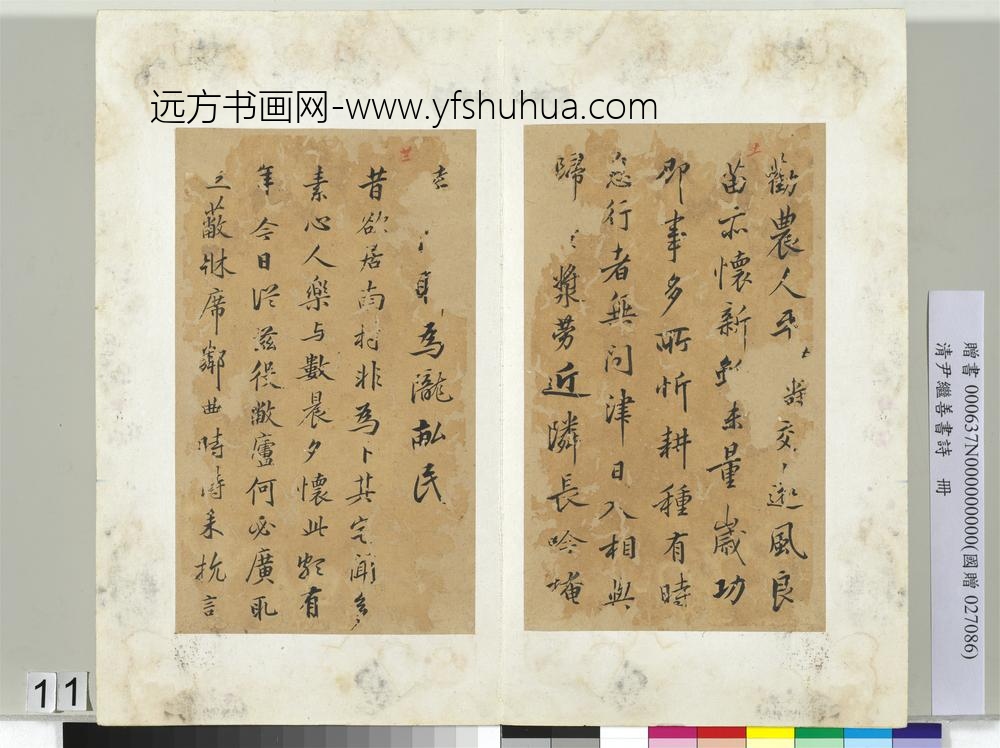 远方书画网-www.yfshuhua.com
勸農人 交 遠風良
苗亦懷新雖未量歲功
即事多所忻耕種有時
息行者無問津日入相與
歸 漿勞近隣長吟掩
為隴畝民
昔欲居南村非為卜其宅聞多
素心人樂与數晨夕懷此頗有
年今日從茲役敝廬何必廣取
蔽牀席鄰曲時時来抗言
贈書 000637N000000000(國贈 027086)
清尹繼善書詩 冊
11